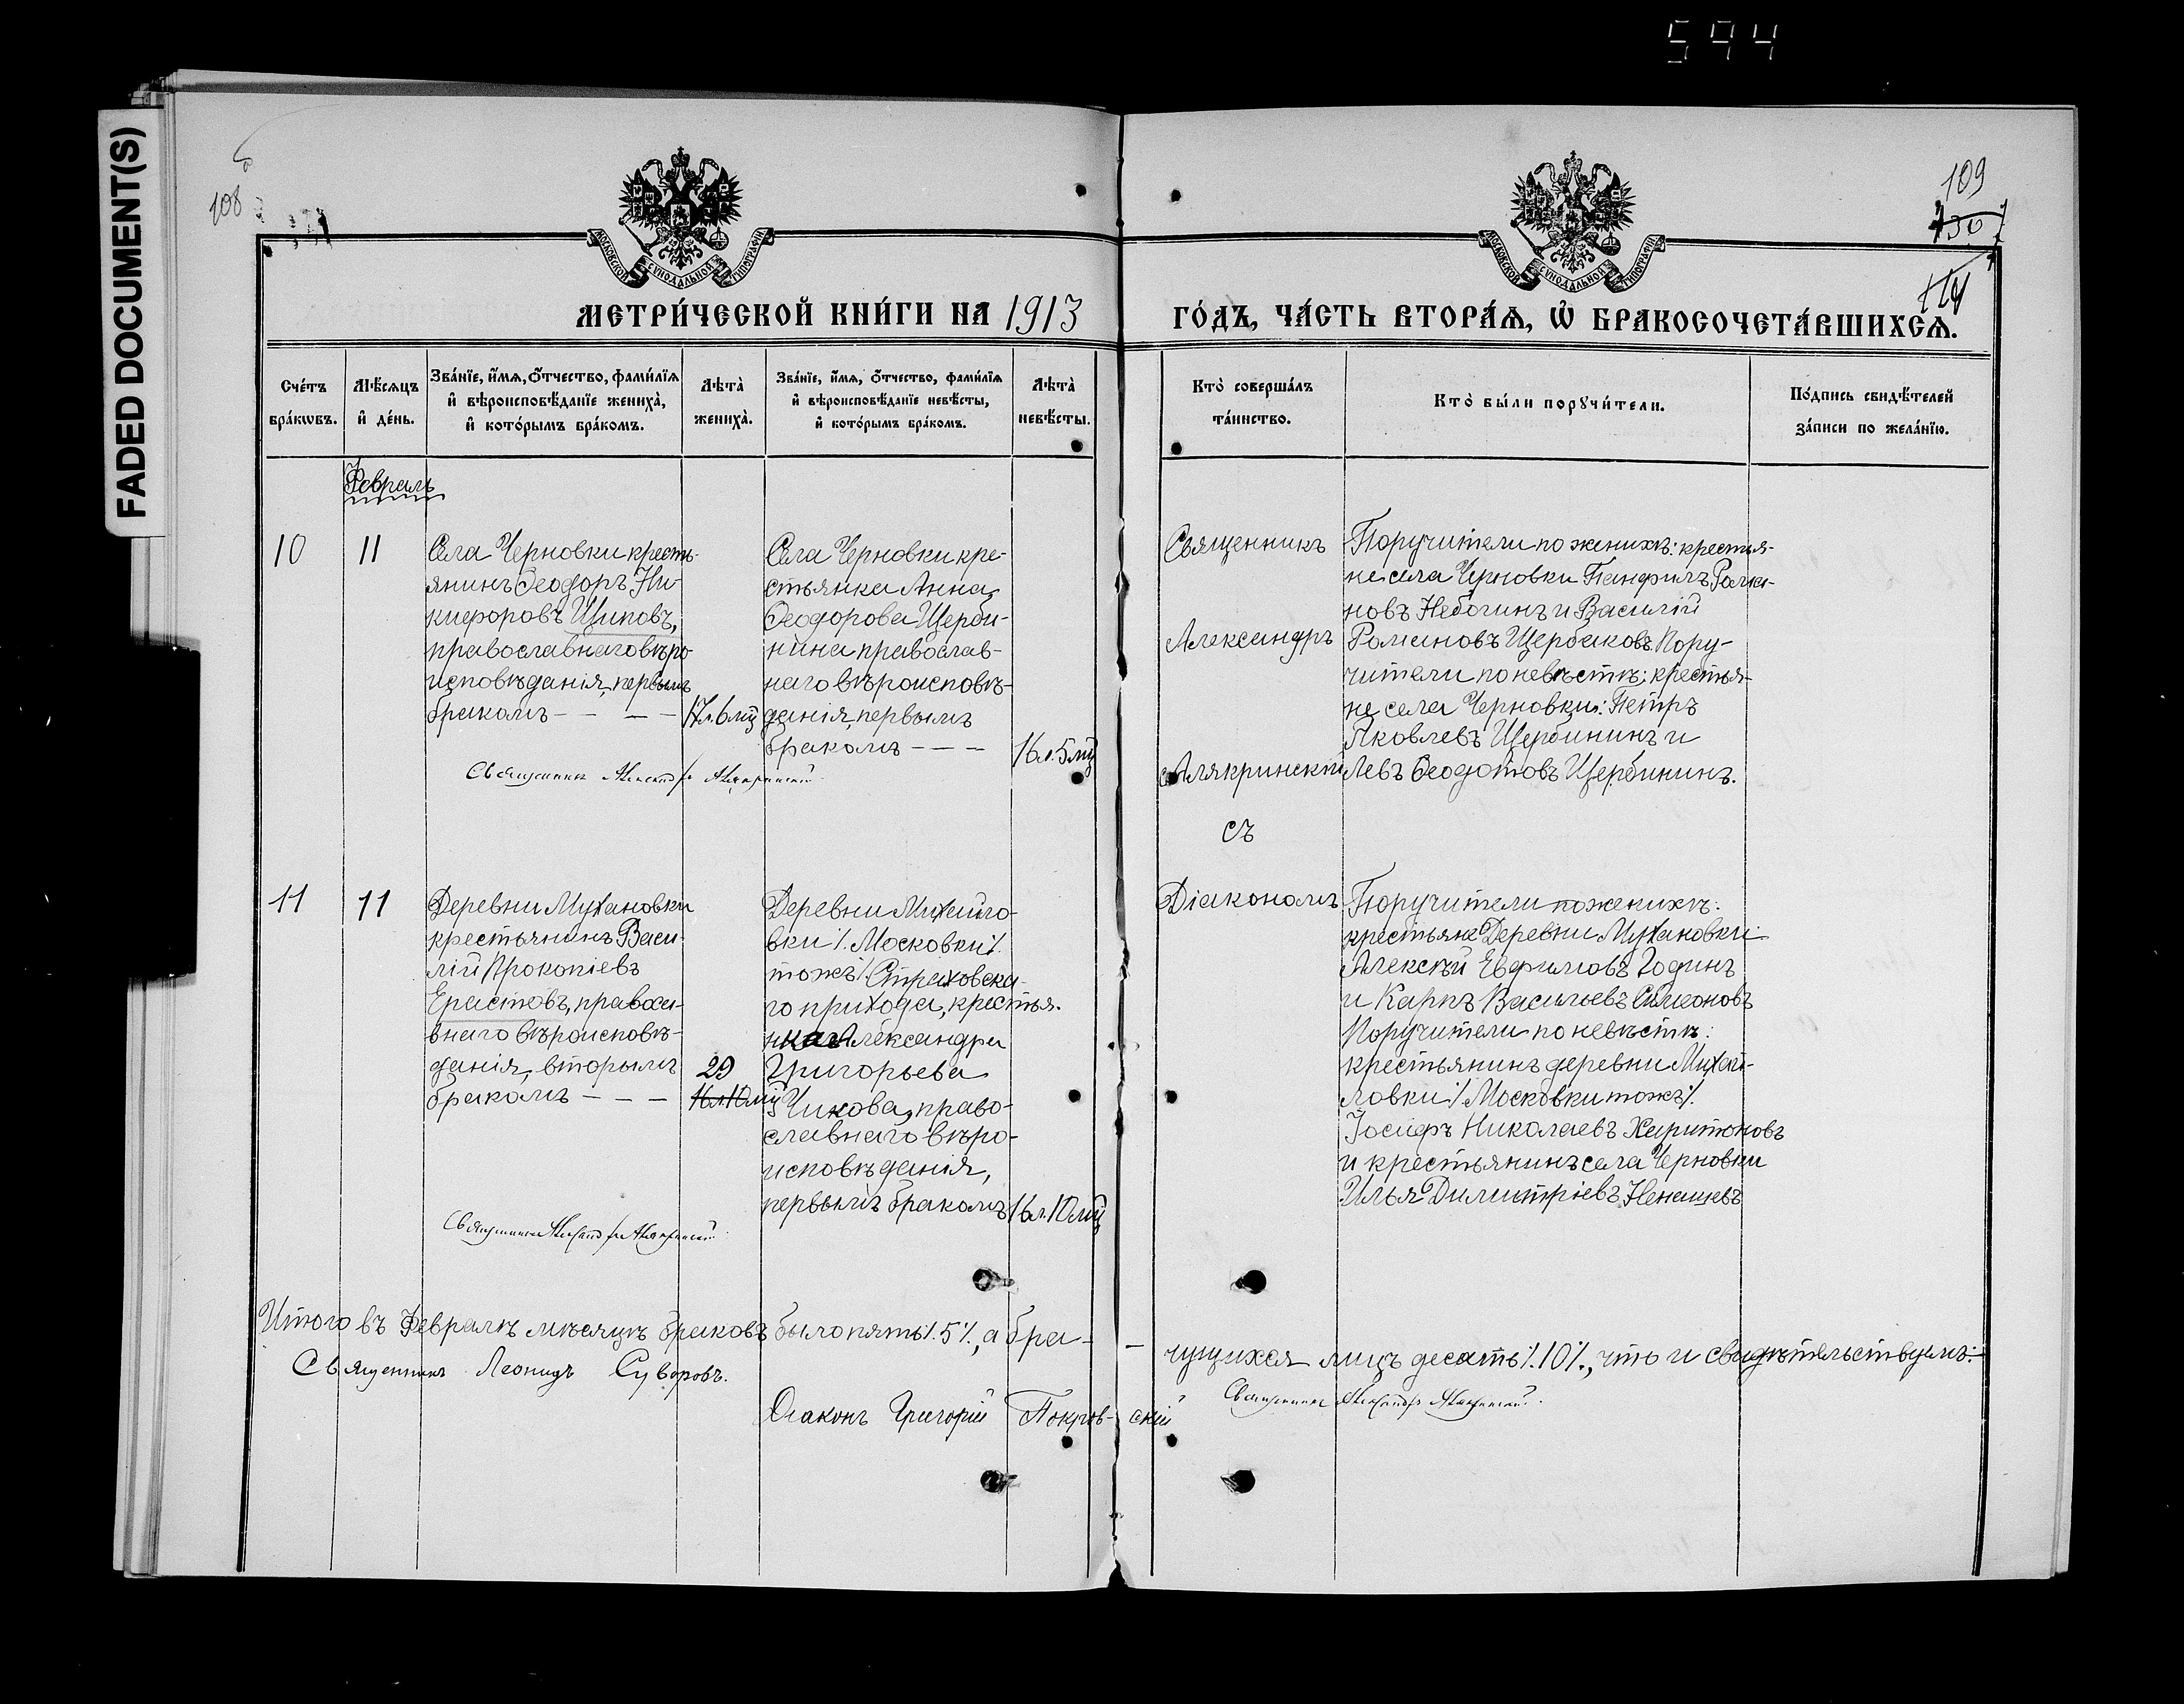 594
FADED DOCUMENT(S)
108
109
130
114
МОСКОВСКОЙ СѴНОДАЛЬНОЙ ТИПОГРАФІИ
МОСКОВСКОЙ СѴНОДАЛЬНОЙ ТИПОГРАФІИ
МЕТРИ́ЧЕСКОЙ КНИ́ГИ НА 1913
ГО́ДЪ, ЧА́СТЬ ВТОРА́Ѧ, Ѡ҆ БРАКОСОЧЕТА́ВШИХСѦ.
Сче́тъ
бра́кѡвъ.
Мѣ́сѧцъ
и҆ де́нь.
Зва́нїе, и҆́мѧ, ѻ҆́тчество, фами́лїѧ
и҆ вѣроисповѣ́данїе жениха̀,
и҆ кото́рымъ бра́комъ.
Лѣта̀
жениха̀.
Зва́нїе, и҆́мѧ, ѻ҆́тчество, фами́лїѧ
и҆ вѣроисповѣ́данїе невѣ́сты,
и҆ кото́рымъ бра́комъ.
Лѣта̀
невѣ́сты.
Кто̀ соверша́лъ
та́инство.
Кто̀ бы́ли порꙋчи́тели.
По́дпись свидѣ́телей
за́писи по жела́нїю.
Февраль
10
11
Села Черновки кресть-
янинъ Ѳеодоръ Ни-
кифоровъ Щиповъ,
православнаго вѣро-
исповѣданія, первымъ
бракомъ - - - -
17 л. 6 мц
Села Черновки кре-
стьянка Анна
Ѳеодорова Щерби-
нина православ-
наго вѣроисповѣ-
данія, первымъ
бракомъ - - -
16 л. 5 мц
Священникъ Александръ Алякринскій
Священникъ
Александръ
Алякринскій
съ
Діакономъ
Поручители по женихѣ: крестья-
не села Черновки Панфилъ Рома-
новъ Небогинъ и Василій
Романовъ Щербаковъ. Пору-
чители по невѣстѣ: крестья-
не села Черновки: Петръ
Яковлевъ Щербининъ и
Левъ Ѳеодотовъ Щербининъ.
11
11
Деревни Мухановки
крестьянинъ Васи-
лій Прокопіевъ
Ерастовъ, правосла-
внаго вѣроисповѣ-
данія, вторымъ
бракомъ - - -
29
16 л 10 мц
Деревни Михайло-
вки /. Московки /.
тожъ /. Страховска-
го прихода, крестья-
нка Александра
Григорьева
Чикова, право-
славнаго вѣро-
исповѣданія,
первымъ бракомъ
16 л. 10 мц
Священникъ Александръ Алякринскій
Поручители по женихѣ:
крестьяне Деревни Мухановки
Алексѣй Евфимовъ Годинъ
и Карпъ Васильевъ Симеоновъ
Поручители по невѣстѣ:
крестьянинъ деревни Михай-
ловки /. Московки тожъ /.
Іосифъ Николаевъ Харитоновъ
и крестьянинъ села Черновки
Илья Димитріевъ Ненашевъ
Итого въ Февралѣ мѣсяцѣ браковъ было пять /. 5 /., а бра-
- чущихся лицъ десять /. 10 /., что и свидѣтельствуемъ:
Священникъ Леонидъ Суворовъ.
Священникъ Александръ Алякринскій.
Діаконъ Григорій Покров- скій